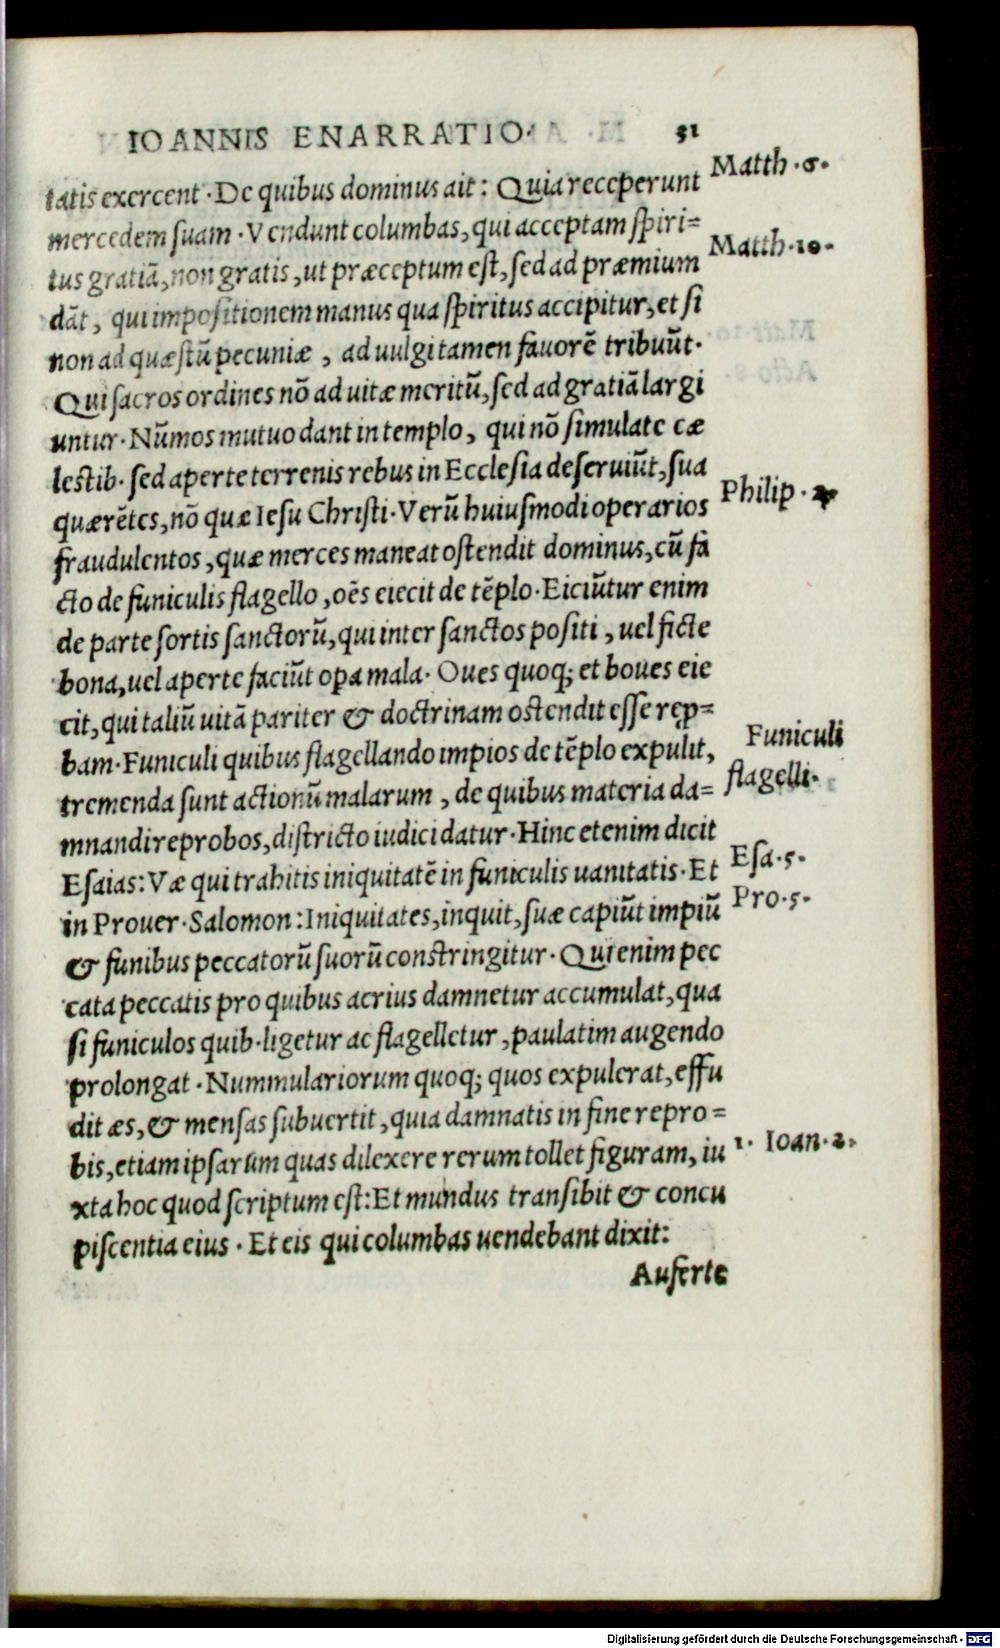 IOANNIS ENARRATIO. 51
tatis exercent. De quibus dominus ait: Quia receperunt
Matth. 6.
mercedem suam. Vendunt columbas, qui acceptam spiri=
Matth. 10.
tus gratiã, non gratis, ut præceptum est, sed ad præmium
dãt, qui impositionem manus qua spiritus accipitur, et si
non ad quæstũ pecuniæ, ad uulgi tamen fauorẽ tribuũt.
Qui sacros ordines nõ ad uitæ meritũ, sed ad gratiã largi
untur. Nũmos mutuo dant in templo, qui nõ simulate cæ
lestib. sed aperte terrenis rebus in Ecclesia deseruiũt, sua
Philip. 2
quærẽtes, nõ quæ Iesu Christi. Verũ huiusmodi operarios
fraudulentos, quæ merces maneat ostendit dominus, cũ fa
cto de funiculis flagello, oẽs eiecit de tẽplo. Eiciũtur enim
de parte sortis sanctorũ, qui inter sanctos positi, uel ficte
bona, uel aperte faciũt opa mala. Oues quoq; et boues eie
cit, qui taliũ uitã pariter & doctrinam ostendit esse rep=
bam. Funiculi quibus flagellando impios de tẽplo expulit,
Funiculi
flagelli.
tremenda sunt actionũ malarum, de quibus materia da=
mnandi reprobos, districto iudici datur. Hinc etenim dicit
Esaias: Væ qui trahitis iniquitatẽ in funiculis uanitatis. Et
Esa. 5.
in Prouer. Salomon: Iniquitates, inquit, suæ capiũt impiũ
Pro. 5.
& funibus peccatorũ suorũ constringitur. Qui enim pec
cata peccatis pro quibus acrius damnetur accumulat, qua
si funiculos quib. ligetur ac flagelletur, paulatim augendo
prolongat. Nummulariorum quoq; quos expulerat, effu
dit æs, & mensas subuertit, quia damnatis in fine repro=
bis, etiam ipsarum quas dilexere rerum tollet figuram, iu
1. Ioan. 2.
xta hoc quod scriptum est: Et mundus transibit & concu
piscentia eius. Et eis qui columbas uendebant dixit:
Auferte
Digitalisierung gefördert durch die Deutsche Forschungsgemeinschaft - DFG